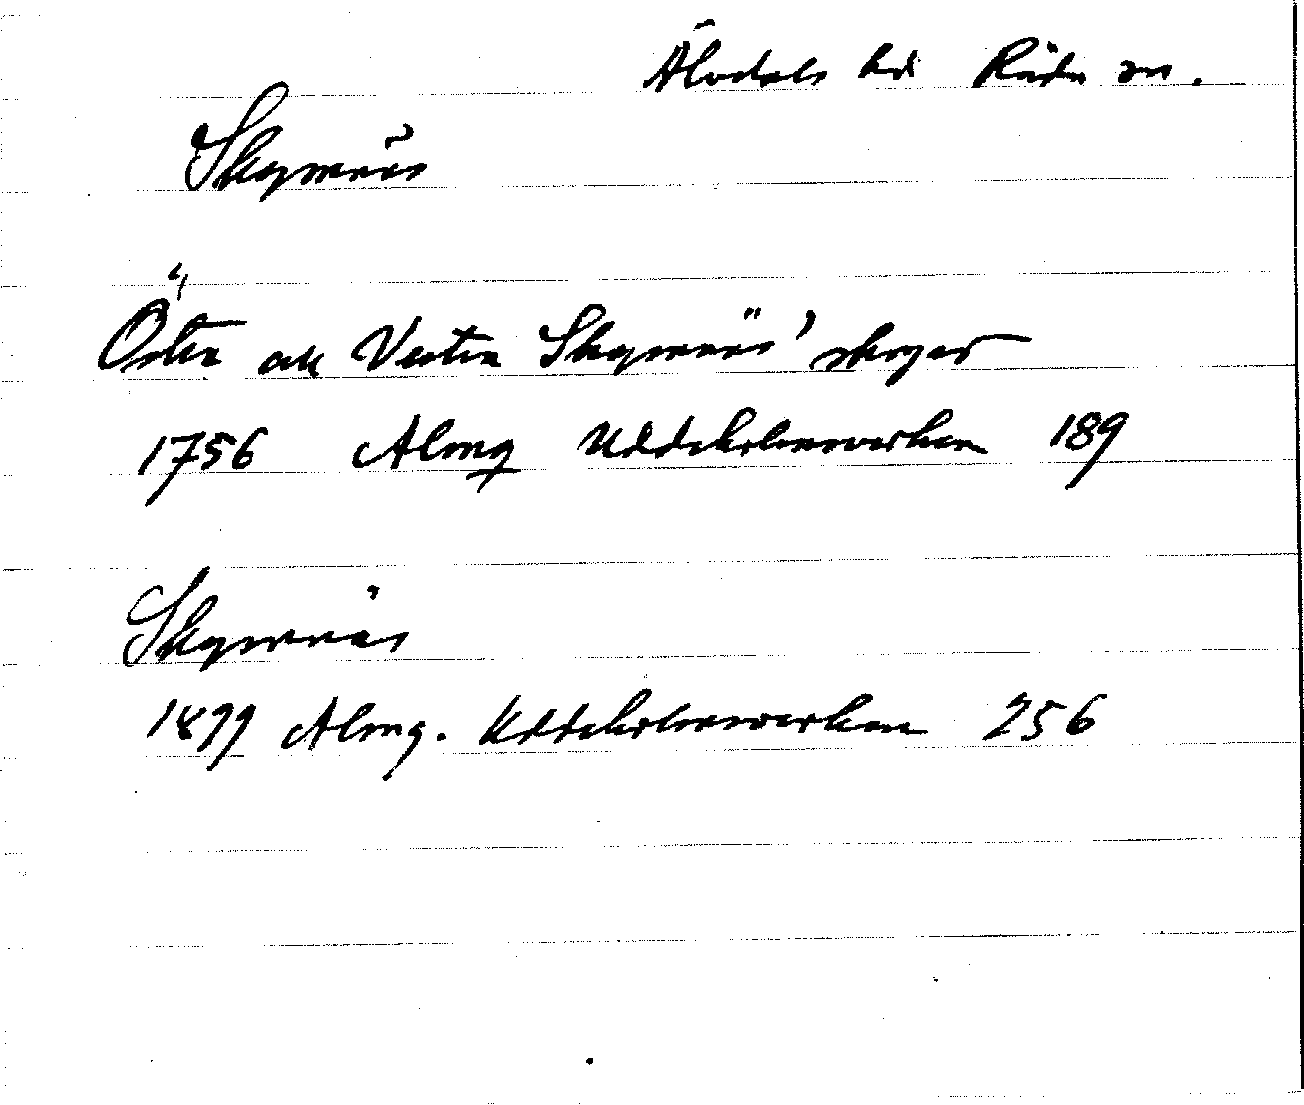 Älvdals hd Råda sn.
Skymnäs
Östra och Vestra Skymnäs' skogar
1756 Almq Uddeholmsverken 189
Skymnäs
1899 Almq. Uddeholmsverken 256